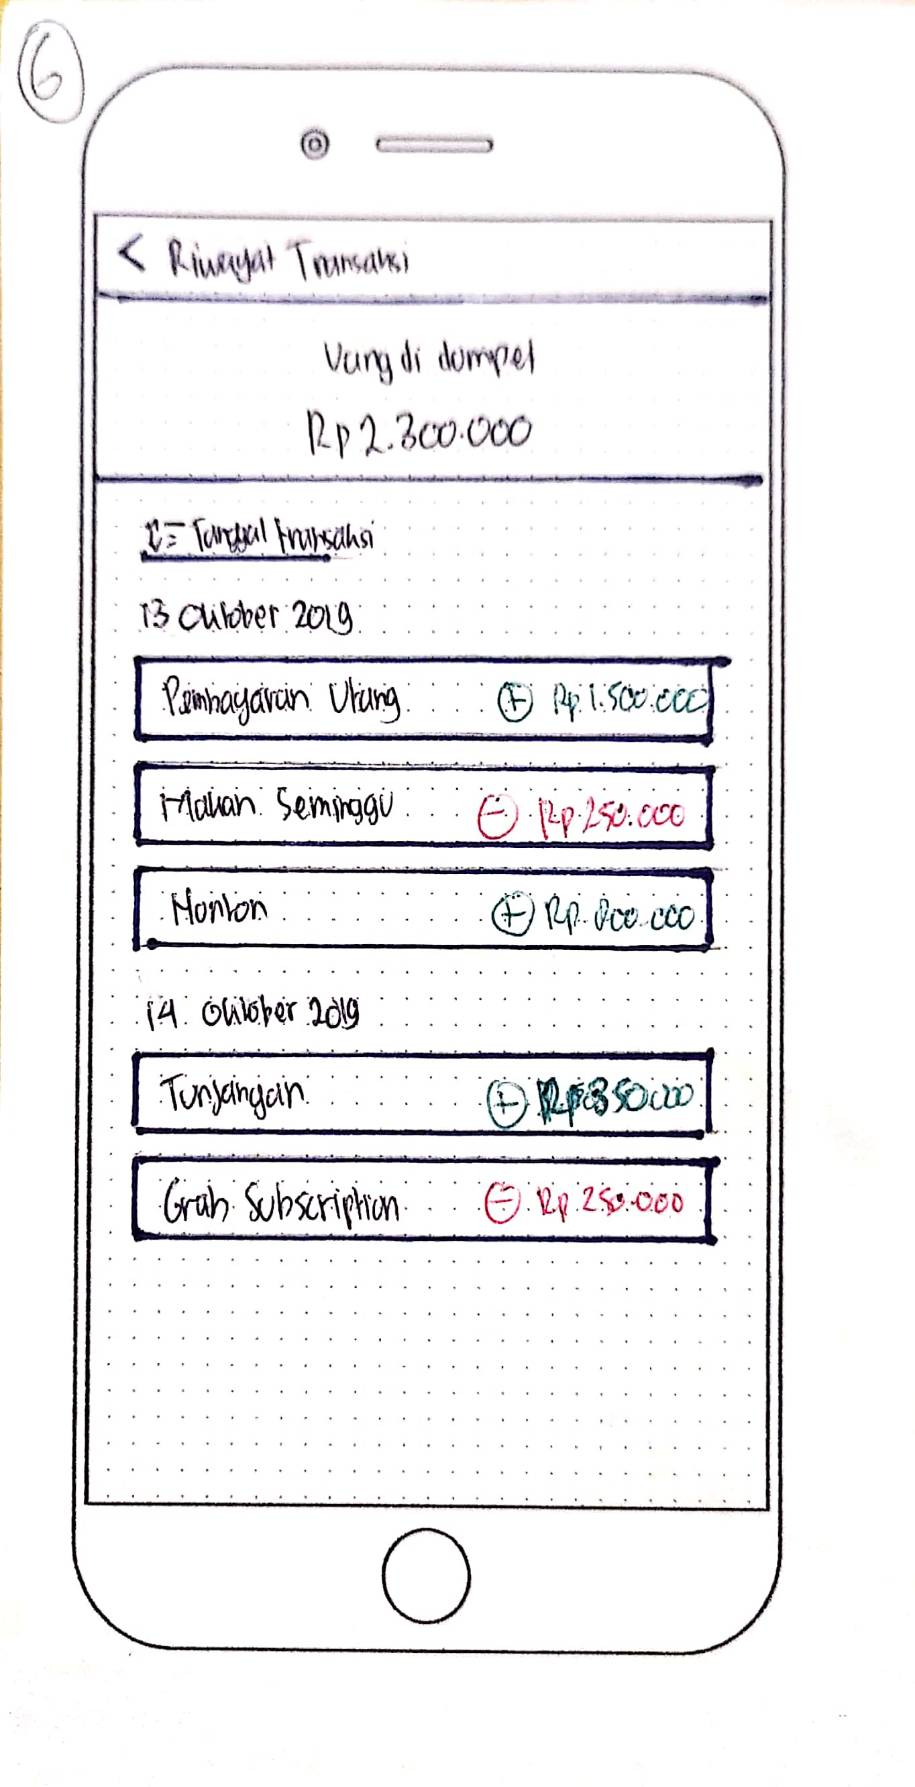 6
< Riwayat Transaksi
Uang di dompet
Rp 2.300.000
Tanggal transaksi
13 Oktober 2019
Pembayaran Utang + Rp 1.500.000
Makan Seminggu - Rp 250.000
Nonton + Rp 800.000
14 Oktober 2019
Tunjangan + Rp 350.000
Grab Subscription - Rp 250.000